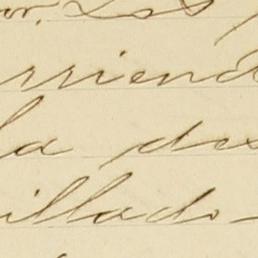 or. Los
rriend
la des
illado-